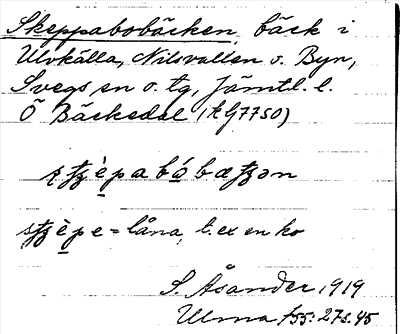 Skeppabobäcken, bäck i
Ulvkälla, Nilsvallen o. Byn,
Svegs sn o. tg, Jämtl. l.
Ö Bäckedal (k G7750)
stjèpabóbætjən
stjèpe = låna, t. ex en ko
S. Åsander 1919
Ulma 155:27 s. 45